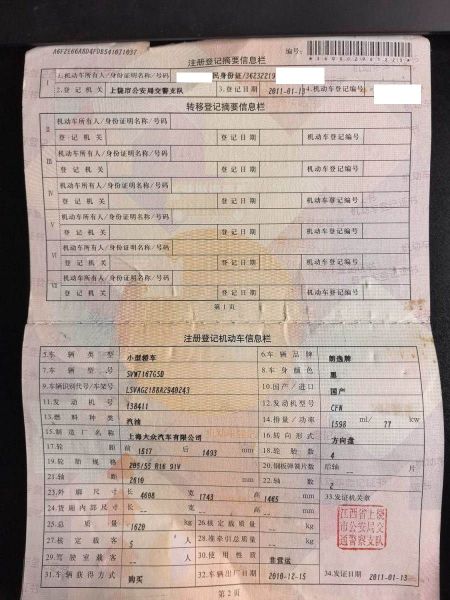 A6FZE66A8D4FDB541071037 编号:
注册登记摘要信息栏
I 1.机动车所有人/身份证明名称/号码 民身份证/36232219
2.登记机关 上饶市公安局交警支队 3.登记日期 2011-01-13 4.机动车登记编号
转移登记摘要信息栏
II 机动车所有人/身份证明名称/号码
登记机关 登记日期 机动车登记编号
III 机动车所有人/身份证明名称/号码
登记机关 登记日期 机动车登记编号
IV 机动车所有人/身份证明名称/号码
登记机关 登记日期 机动车登记编号
V 机动车所有人/身份证明名称/号码
登记机关 登记日期 机动车登记编号
VI 机动车所有人/身份证明名称/号码
登记机关 登记日期 机动车登记编号
VII 机动车所有人/身份证明名称/号码
登记机关 登记日期 机动车登记编号
第1页
注册登记机动车信息栏
5.车辆类型 小型轿车 6.车辆品牌 朗逸牌
7.车辆型号 SVW7167GSD 8.车身颜色 黑
9.车辆识别代号/车架号 LSVAG218BA2940243 10.国产/进口 国产
11.发动机号 138411 12.发动机型号 CFN
13.燃料种类 汽油 14.排量/功率 1598 ml/ 77 kw
15.制造厂名称 上海大众汽车有限公司 16.转向形式 方向盘
17.轮距 前 1517 后 1493 mm 18.轮胎数 4
19.轮胎规格 205/55 R16 91V 20.钢板弹簧片数 后轴 -- 片
21.轴距 2610 mm 22.轴数 2
23.外廓尺寸 长 4608 宽 1743 高 1465 mm 33.发证机关章
24.货厢内部尺寸 长 -- 宽 -- 高 -- mm
25.总质量 1620 kg 26.核定载质量 -- kg
27.核定载客 5 人 28.准牵引总质量 -- kg
29.驾驶室载客 -- 人 30.使用性质 非营运
31.车辆获得方式 购买 32.车辆出厂日期 2010-12-15 34.发证日期 2011-01-13
江西省上饶
市公安局交
通警察支队
第2页